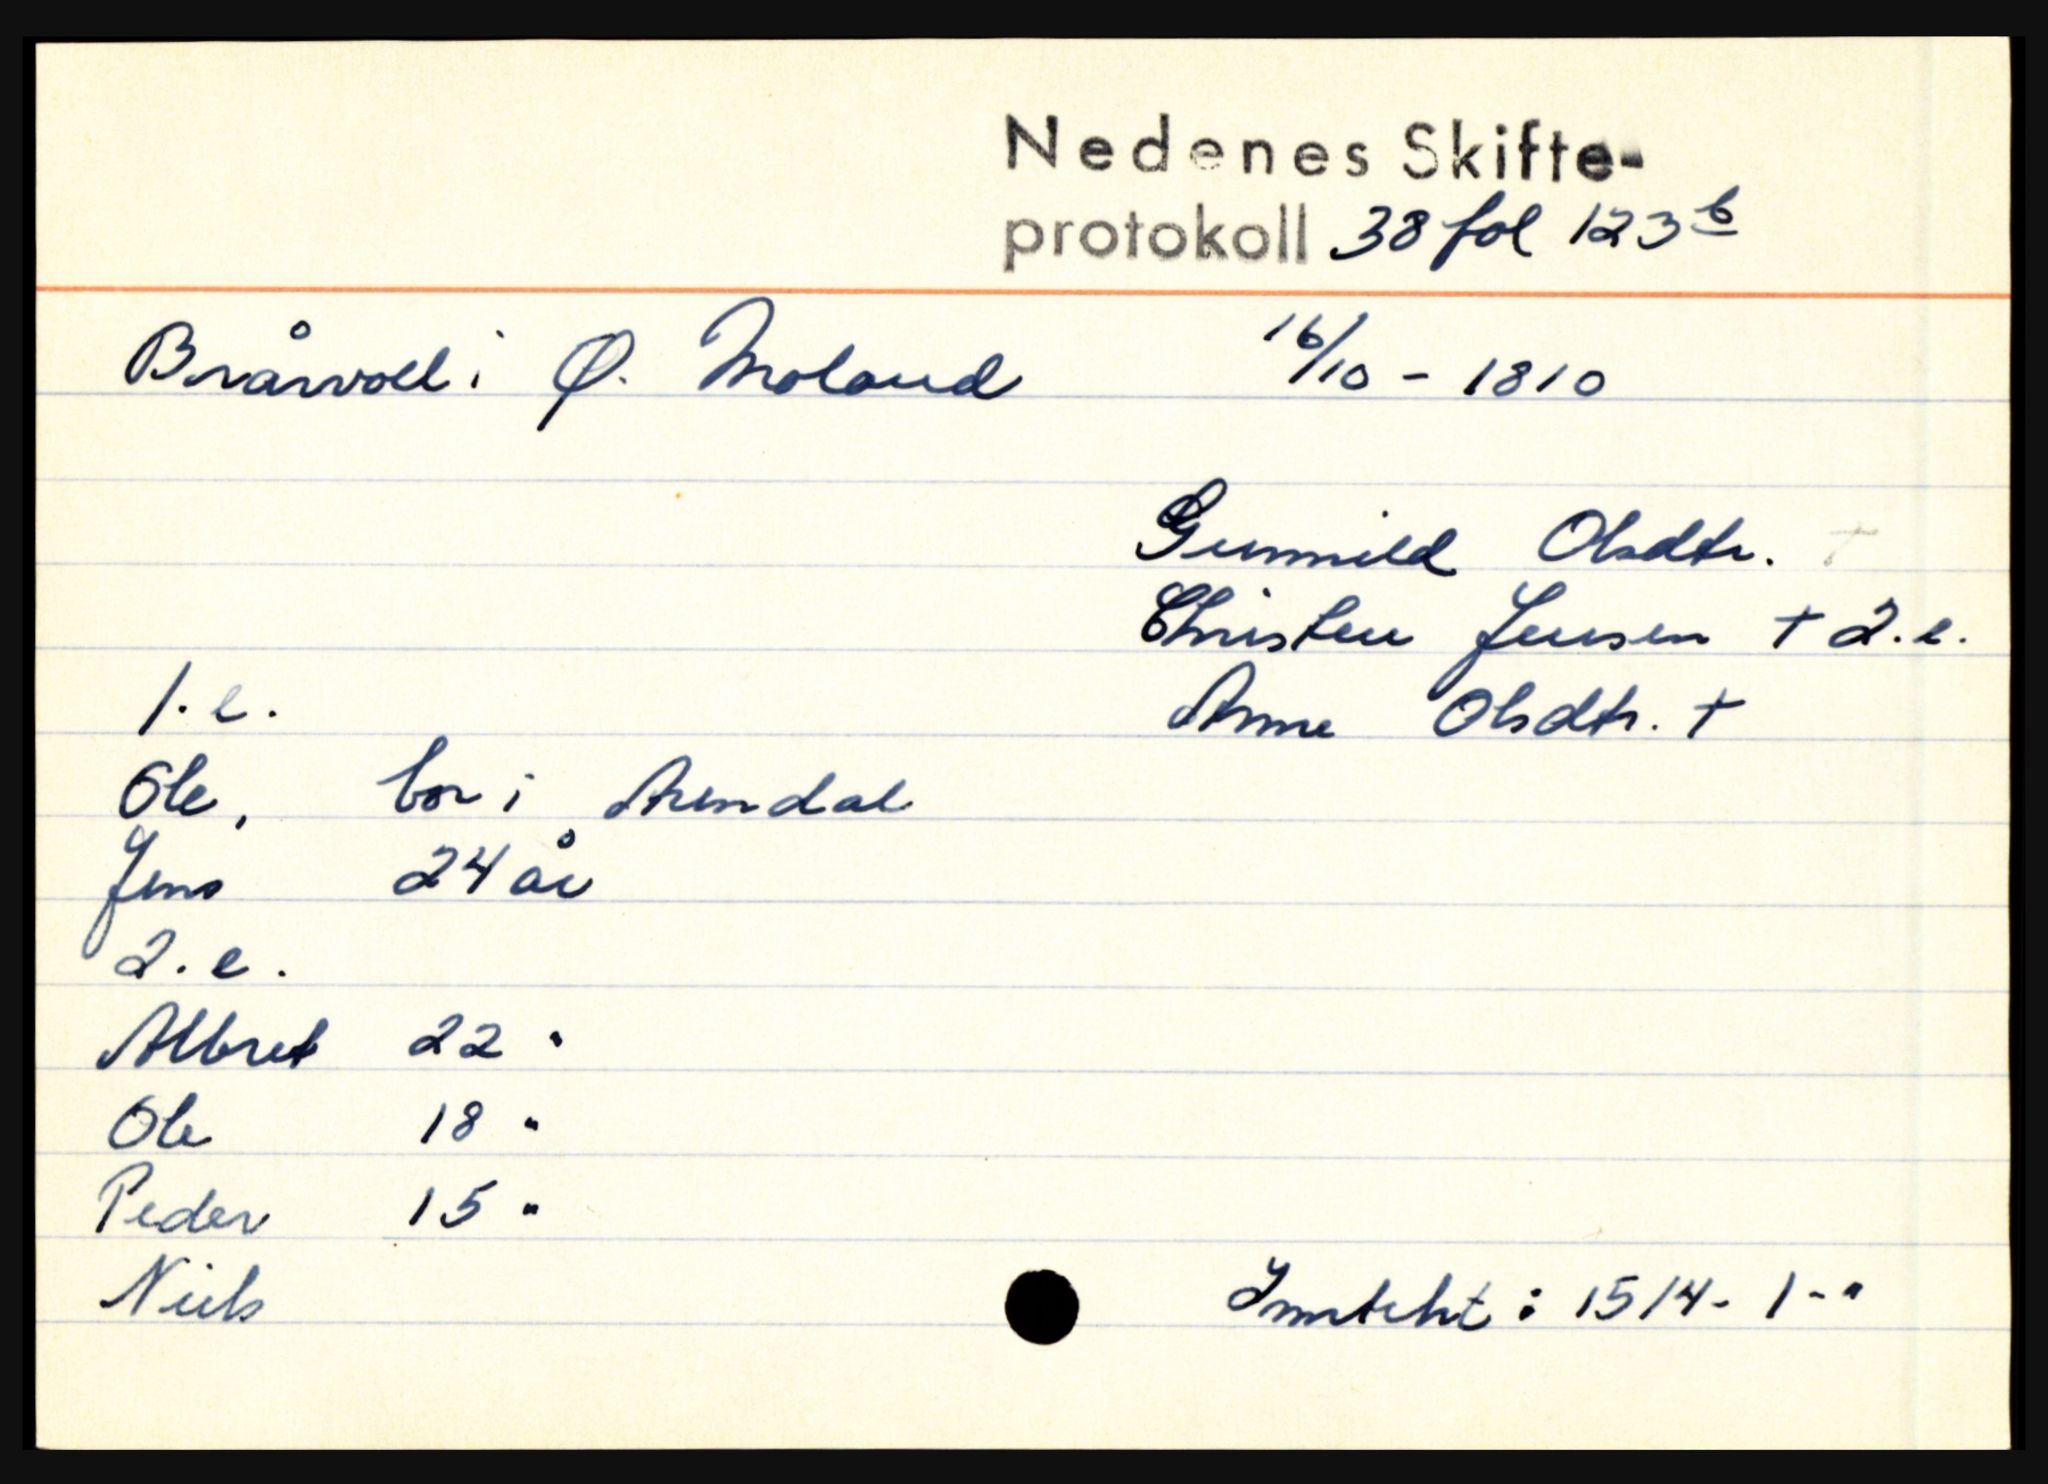 Nedenes Skifte-
protokoll 38 fol 123 b
Bråvoll i Ø. Moland 16/10 - 1810
Gunnild Olsdtr. †
Christen Jensen † 2.e.
1.e. Anne Olsdtr. †
Ole, bor i Arendal
Jens 24 år
2.e.
Albret 22 "
Ole 18 "
Peder 15 "
Niels Inntekt: 1514 - 1 - "